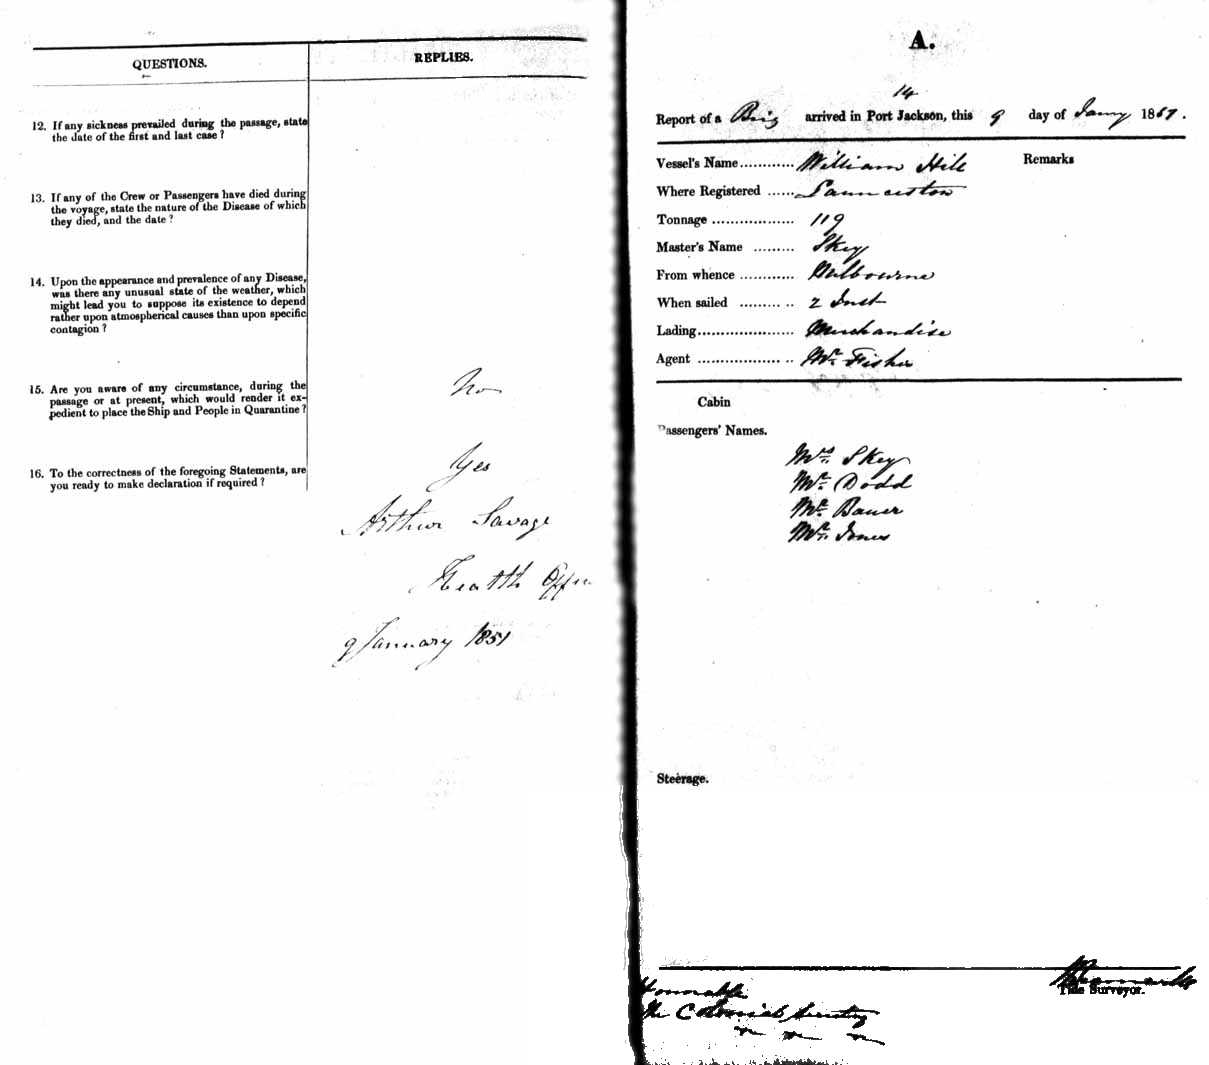 QUESTIONS.
REPLIES.
12. If any sickness prevailed during the passage, state
the date of the first and last case ?
13. If any of the Crew or Passengers have died during
the voyage, state the nature of the Disease of which
they died, and the date ?
14. Upon the appearance and prevalence of any Disease,
was there any unusual state of the weather, which
might lead you to suppose its existence to depend
rather upon atmospherical causes than upon specific
contagion ?
15. Are you aware of any circumstance, during the
passage or at present, which would render it ex-
pedient to place the Ship and People in Quarantine ?
No
16. To the correctness of the foregoing Statements, are
you ready to make declaration if required ?
Yes
Arthur Savage
Health Offi
9 January 1851
A.
14
Report of a Brig arrived in Port Jackson, this 9 day of Jany 1851.
Vessel's Name............ William Hill
Remarks
Where Registered ...... Launceston
Tonnage .................. 119
Master's Name ......... Skey
From whence ............ Melbourne
When sailed ......... .. 2 Inst
Lading..................... Merchandise
Agent .................. .. Mr. Fisher
Cabin
Passengers' Names.
Mrs. Skey
Mr. Dodd
Mr. Bauer
Mr. Jones
Steerage.
Tide Surveyor.
Honorable
The Colonial Secretary